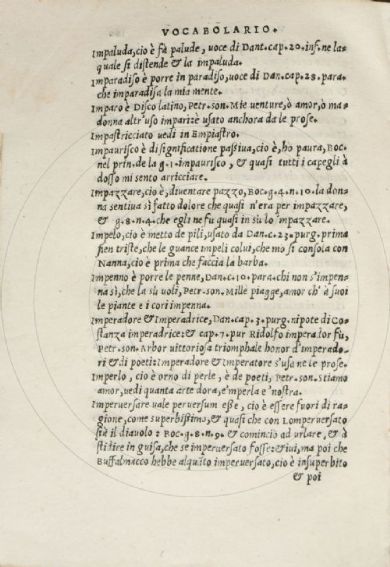 VOCABOLARIO.
Impaluda, cio è fié palude, voce di Dant. cap. 20. inf. ne la
quale si distende & la impaluda.
Imparadiso è porre in paradiso, voce di Dan. cap. 28. para.
che imparadisa la mia mente.
Imparo è Disco latino, Petr. son. Mie venture, ò amor, ò ma
donna altr'uso imparizè usato anchora da le prose.
Impastricciato vedi in Empiastro.
Impaurisco è di significatione passiua, cio è, ho paura, Boc.
nel prin. de la g. 1. impaurisco, & quasi tutti i capegli à
dosso mi sento arricciare.
Impazzare, cio è, diuentare pazzo, Boc. g. 4. n. 10. la don
na sentiua sì fatto dolore che quasi n'era per impazzare,
& g. 8. n. 4. che egli ne fu quasi in sù lo impazzare.
Impelo, cio è metto de pili, usato da Dan. c. 23. purg. prima
fien triste, che le guance impeli colui, che mo si consola con
Nanna, cio è prima che faccia la barba.
Impenno è porre le penne, Dan. c. 10. para. chi non s'impen
na sì, che la sù uoli, Petr. son. Mille piagge, amor ch'à suoi
le piante e i cori impenna.
Imperadore & Imperadrice, Dan. cap. 3. purg. nipote di Co
stanza imperadrice: & cap. 7. pur Ridolfo imperador fu,
Petr. son. Arbor uittoriosa triomphale honor d'imperado
ri & di poeti: Imperadore & Imperatore s'usa ne le prose.
Imperlo, cio è orno di perle, è de poeti, Petr. son. Stiamo
amor, uedi quanta arte dora, e'mperla e'nostra.
Imperuersare vale peruersum esse, cio è essere fuori di ra
gione, come superbissimo, & quasi che con Lomperuersato
siè il diauolo: Boc. g. 8. n. 9. & comincio ad urlare, & à
stridire in guisa, che se imperuersato fosse: & iui, ma poi che
Buffalmacco hebbe alquãto imperuersato, cio è insuperbito
& poi